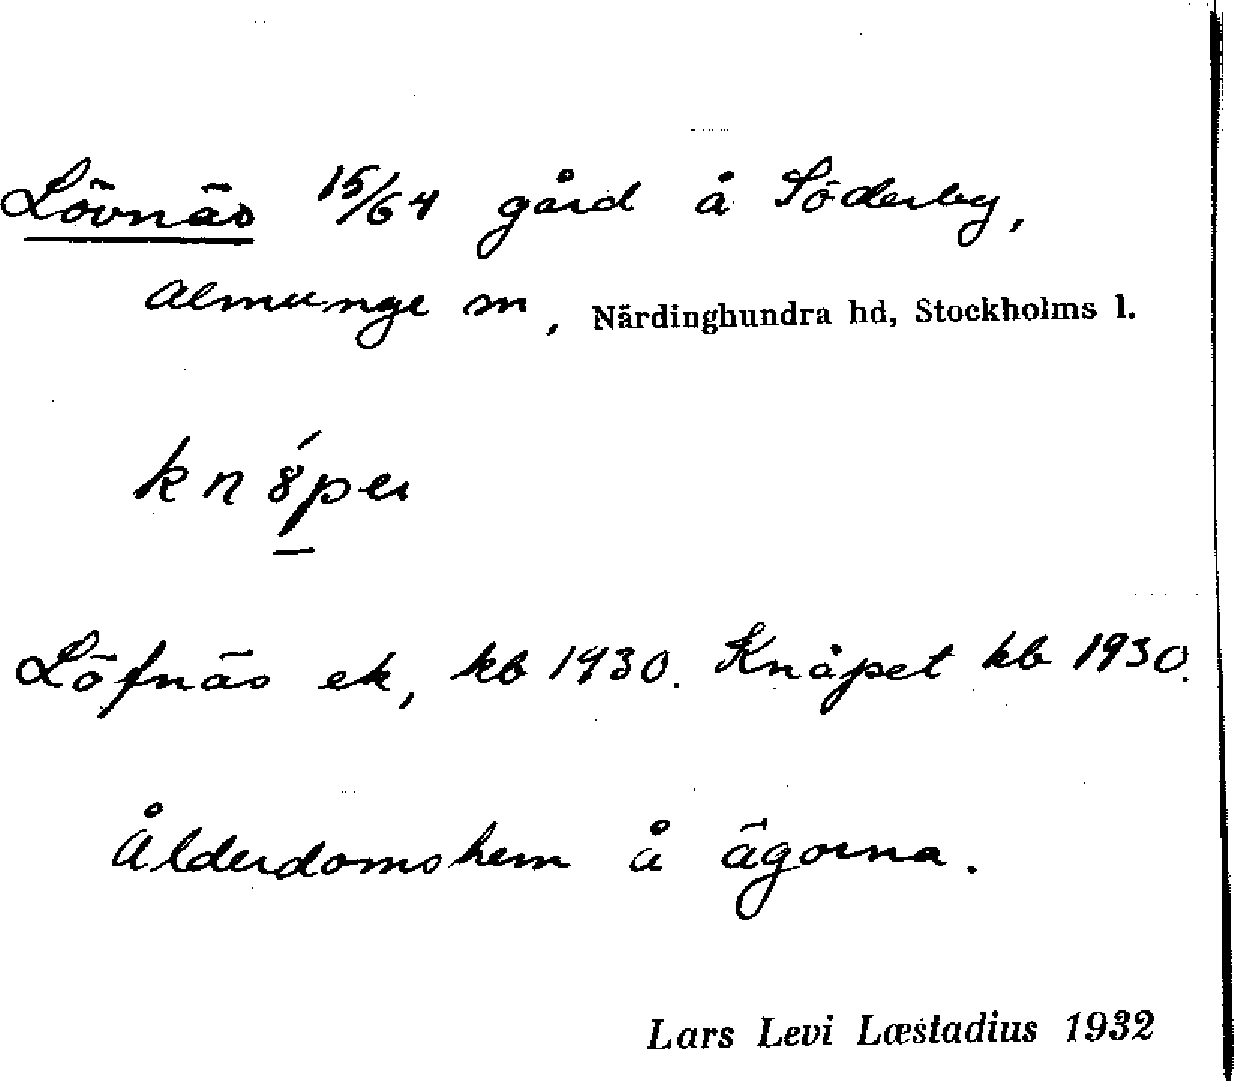 Lövnäs 15/64 gård å Söderby,
Almunge sn, Närdinghundra hd, Stockholms l.
Löfnäs ek, kb 1930. Knåpet kb 1930.
Ålderdomshem å ägorna.
Lars Levi Læstadius 1932